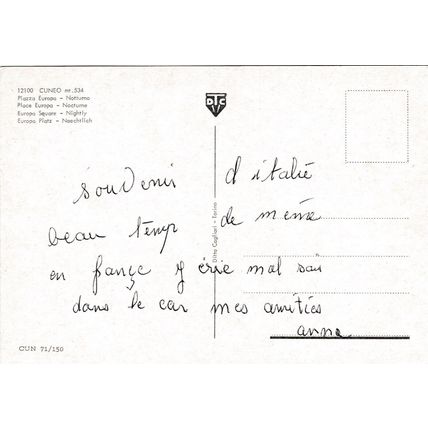 12100 CUNEO nr. 534
Piazza Europa - Notturno
Place Europa - Nocturne
Europa Square - Nightly
Europa Platz - Naechtlich
DTC
Ditta Cagliari - Torino
souvenir d'italie
beau temp de même
en françe mal
dans le car mes amities
anne
CUN 71/150